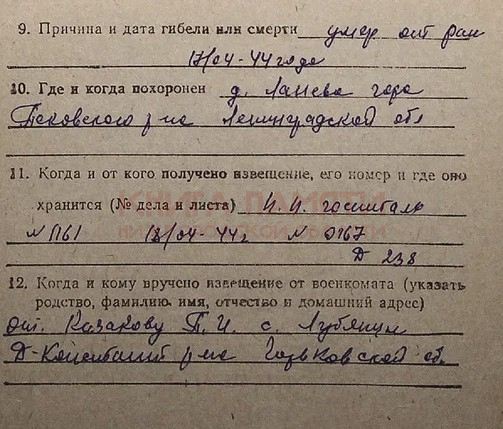 9. Причина и дата гибели или смерти умер от ран
17/04-44 года
10. Где и когда похоронен д. Ланева гора
Псковского р-на Ленинградской обл
11. Когда и от кого получено извещение, его номер и где оно
хранится (№ дела и листа) И.И. госпиталь
КНИГА ПАМЯТИ
N П61 18/04-44г N 0167
Д 238
12. Когда и кому вручено извещение от военкомата (указать
родство, фамилию, имя, отчество и домашний адрес)
от. Казакову П.И. с. Лубянцы
Д-Константин р-на Горьковской об.